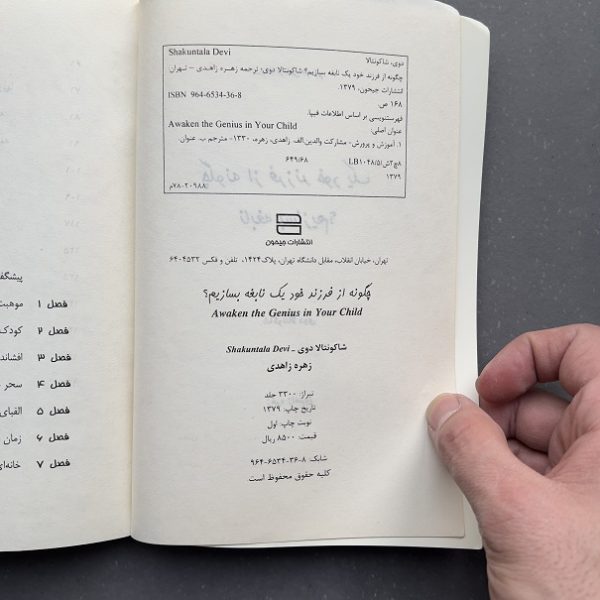 Shakuntala Devi
دوی، شاکونتالا
چگونه از فرزند خود یک نابغه بسازیم؟ شاکونتالا دوی؛ ترجمه زهره زاهدی - تهران
انتشارات جیحون، ۱۳۷۹.
۱۶۸ ص.
ISBN 964-6534-36-8
فهرستنویسی بر اساس اطلاعات فیپا.
عنوان اصلی: Awaken the Genius in Your Child
۱. آموزش و پرورش- مشارکت والدین.الف. زاهدی، زهره، ۱۳۳۰- مترجم ب. عنوان
۶۴۹/۶۸
LB۱۰۴۸/۵/
۱۳۷۹
۷۸-۲۰۹۸۸م
انتشارات جیحون
تهران، خیابان انقلاب، مقابل دانشگاه تهران، پلاک ۱۴۲۴، تلفن و فکس ۶۴۰۴۵۳۲
چگونه از فرزند خود یک نابغه بسازیم؟
Awaken the Genius in Your Child
شاکونتالا دوی - Shakuntala Devi
زهره زاهدی
تیراژ: ۳۳۰۰ جلد
تاریخ چاپ: ۱۳۷۹
نوبت چاپ: اول
قیمت: ۸۵۰۰ ریال
شابک: ۸-۳۶-۶۵۳۴-۹۶۴
کلیه حقوق محفوظ است
پیشگف
فصل ۱ موهبت
فصل ۲ کودک
فصل ۳ افشاند
فصل ۴ سحر
فصل ۵ الفبای
فصل ۶ زمان
فصل ۷ خانه‌ا